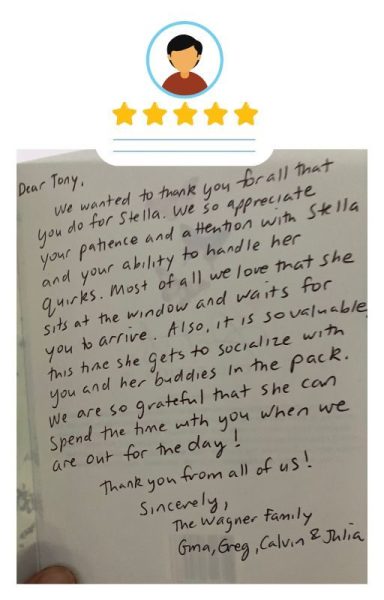 Dear Tony,
We wanted to thank you for all that
you do for Stella. We so appreciate
your patience and attention with Stella
and your ability to handle her
quirks. Most of all we love that she
sits at the window and waits for
you to arrive. Also, it is so valuable
this time she gets to socialize with
you and her buddies in the pack.
We are so grateful that she can
spend the time with you when we
are out for the day!
Thank you from all of us!
Sincerely,
The Wagner Family
Gma, Greg, Calvin & Julia